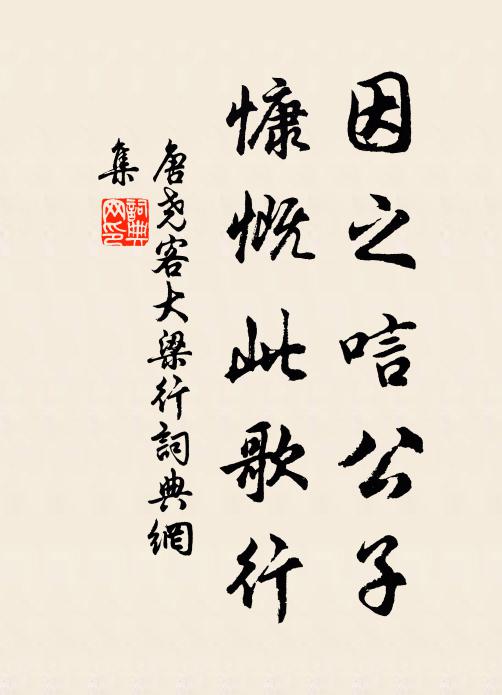 因之唁公子
慷慨此歌行
唐尧客大梁行詞典網
集
詞典网印